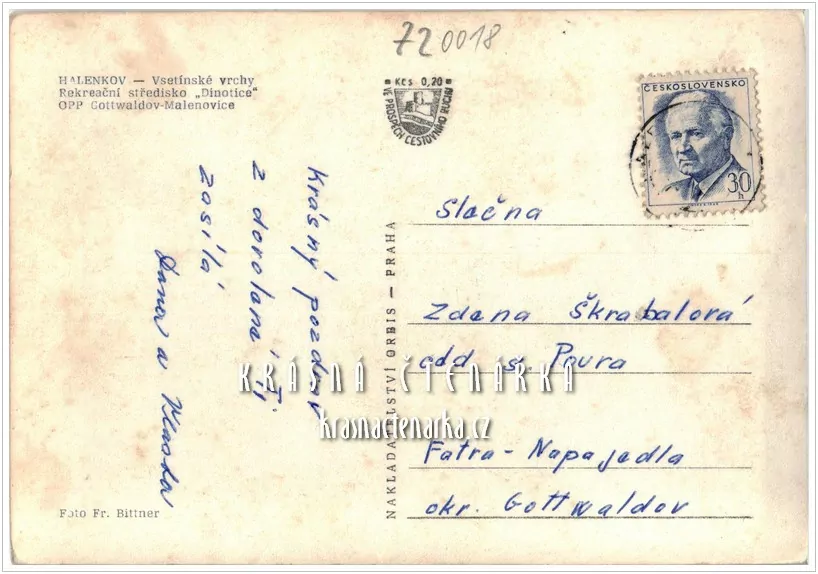 720018
HALENKOV — Vsetínské vrchy
Rekreační středisko „Dinotice"
OPP Gottwaldov-Malenovice
Kčs 0,20
VE PROSPĚCH CESTOVNÍHO RUCHU
ČESKOSLOVENSKO
30
h
Krásný pozdrav
z dovolené Ti
zasílá
Dana a Vlasta
NAKLADATELSTVÍ ORBIS — PRAHA
Slečna
Zdena Škrabalová
odd
Fatra - Napajedla
okr. Gottwaldov
Foto Fr. Bittner
KRÁSNÁ ČTENÁRKA
krasnactenarka.cz